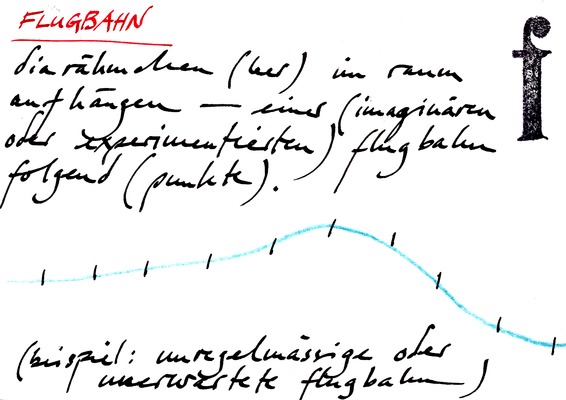 FLUGBAHN
f
diarähmchen (leer) im raum
aufhängen — einer (imaginären
oder experimentierten) flugbahn
folgend (punkte).
(beispiel: unregelmässige oder
unerwartete flugbahn)